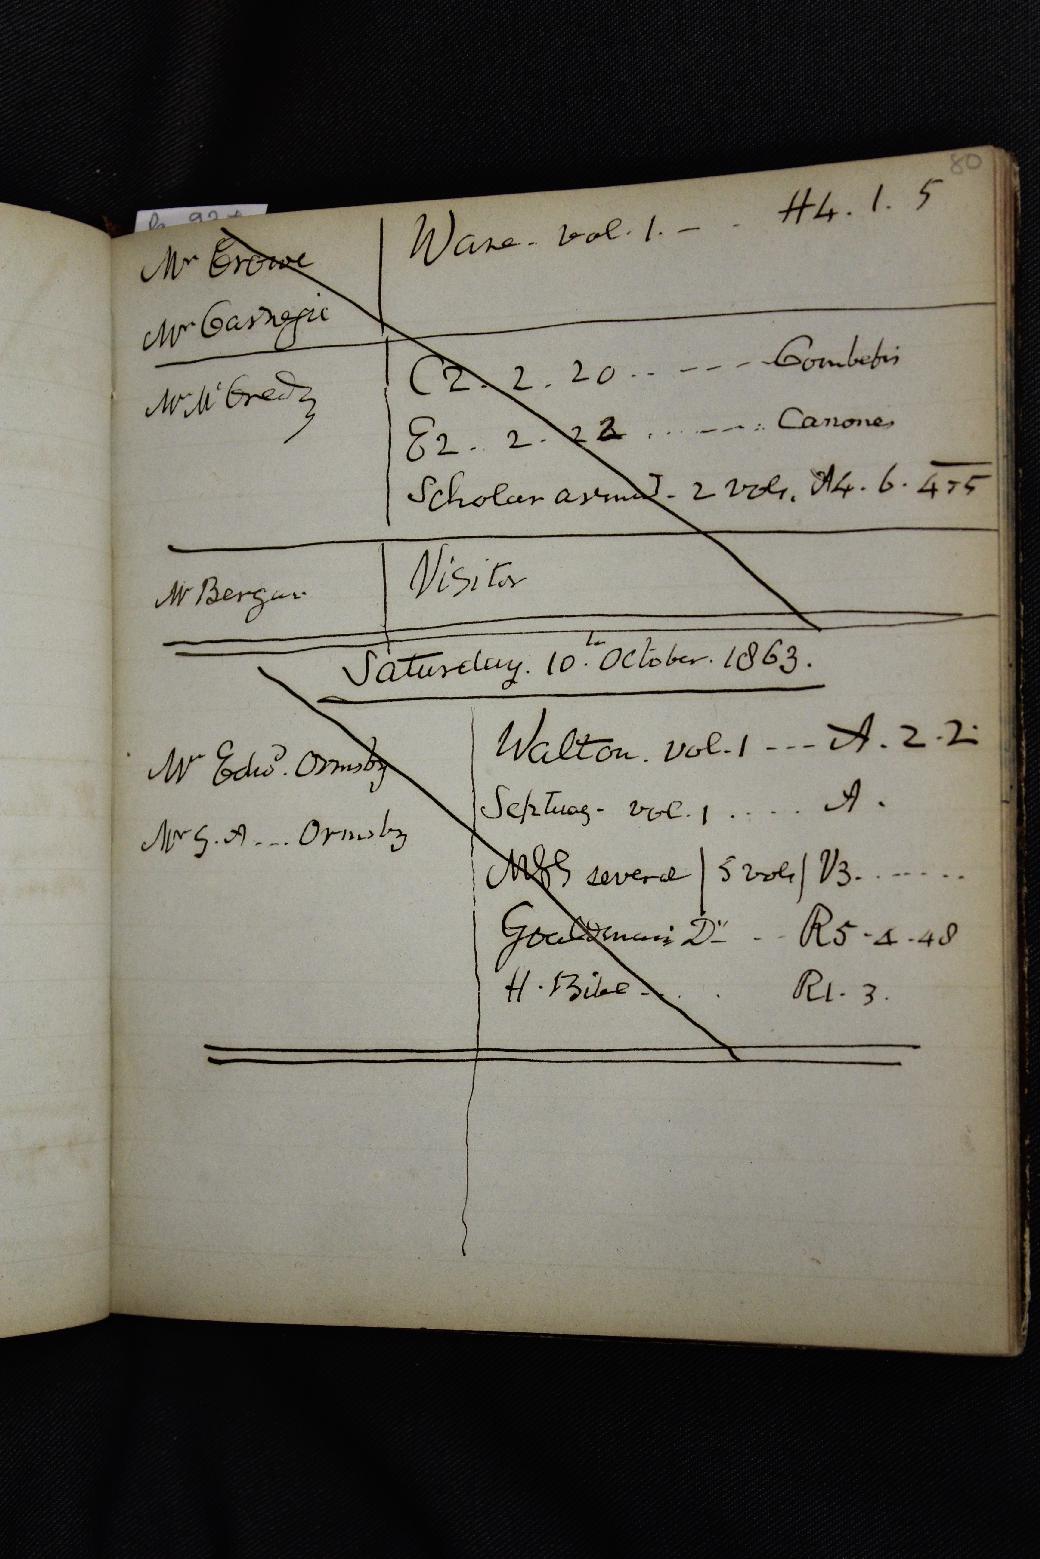 80
Mr Crowe Ware - vol. 1. - - H4. 1. 5
Mr Carnegie
Mr McCredy C2. 2. 20 .. - - - - Combefis
E2. 2. 22 ..... - - - .. Canones
Scholar armed - 2 vols. A4. 6. 4+5
Mr Bergan Visitor
Saturday. 10th October. 1863.
Mr Edwd. Ormsby Walton. vol. 1 --- A. 2. 2.
Septuag - vol. 1 ..... A.
Mr G. A ... Ormsby
MSS several | 5 vols | V3. .......
Gouldman's Dy - - R5 - 4 - 48
H. Bible - . . R1. 3.